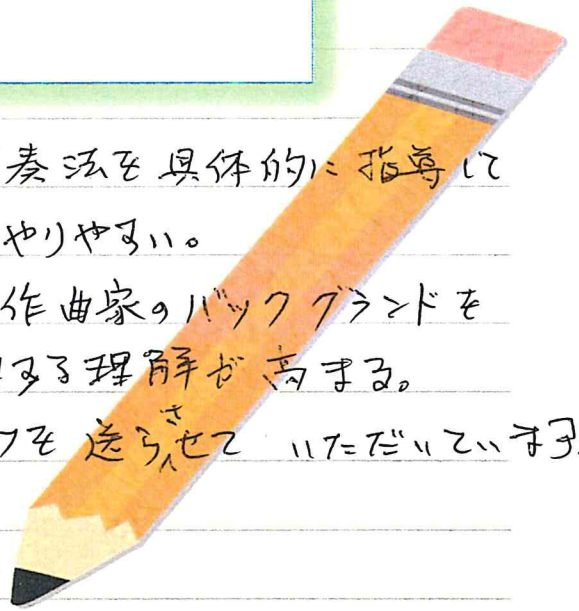 奏法を具体的に指導して
やりやすい。
作曲家のバックグランドを
する理解が高まる。
フを送らさせていただいています